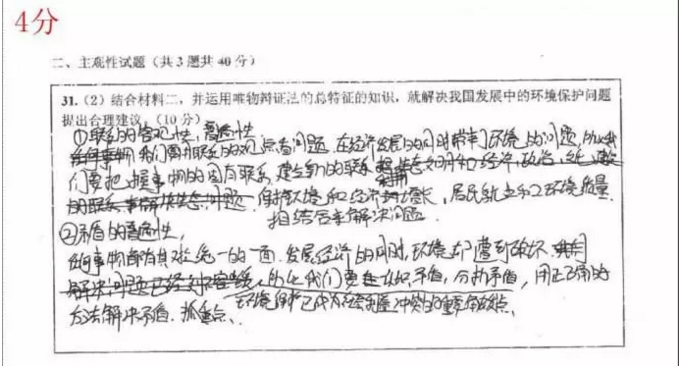 4分
二、主观性试题（共3题共40分）
31.（2）结合材料二，并运用唯物辩证法的总特征的知识，就解决我国发展中的环境保护问题
提出合理建议。（10分）
①联系的客观性，普遍性
我们要用联系的观点看问题，在经济发展的同时带来环境的问题，所以我
们要把握事物的固有联系，建立新的联系
保护环境和经济增长，居民就业和环境质量
相结合来解决问题．
②矛盾的普遍性，
任何事物都有其对立统一的一面．发展经济的同时，环境却遭到破坏
我们要去认识矛盾，分析矛盾，用正确的
环境保护已成为
方法解决矛盾．抓重点、